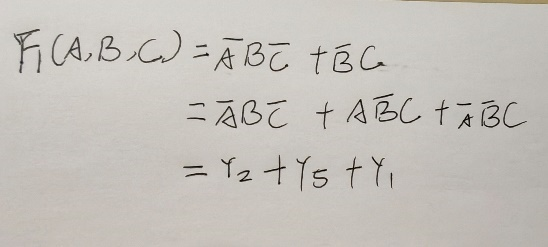 F₁(A,B,C) = A̅BC̅ + B̅C
= A̅BC̅ + AB̅C + A̅B̅C
= Y₂ + Y₅ + Y₁